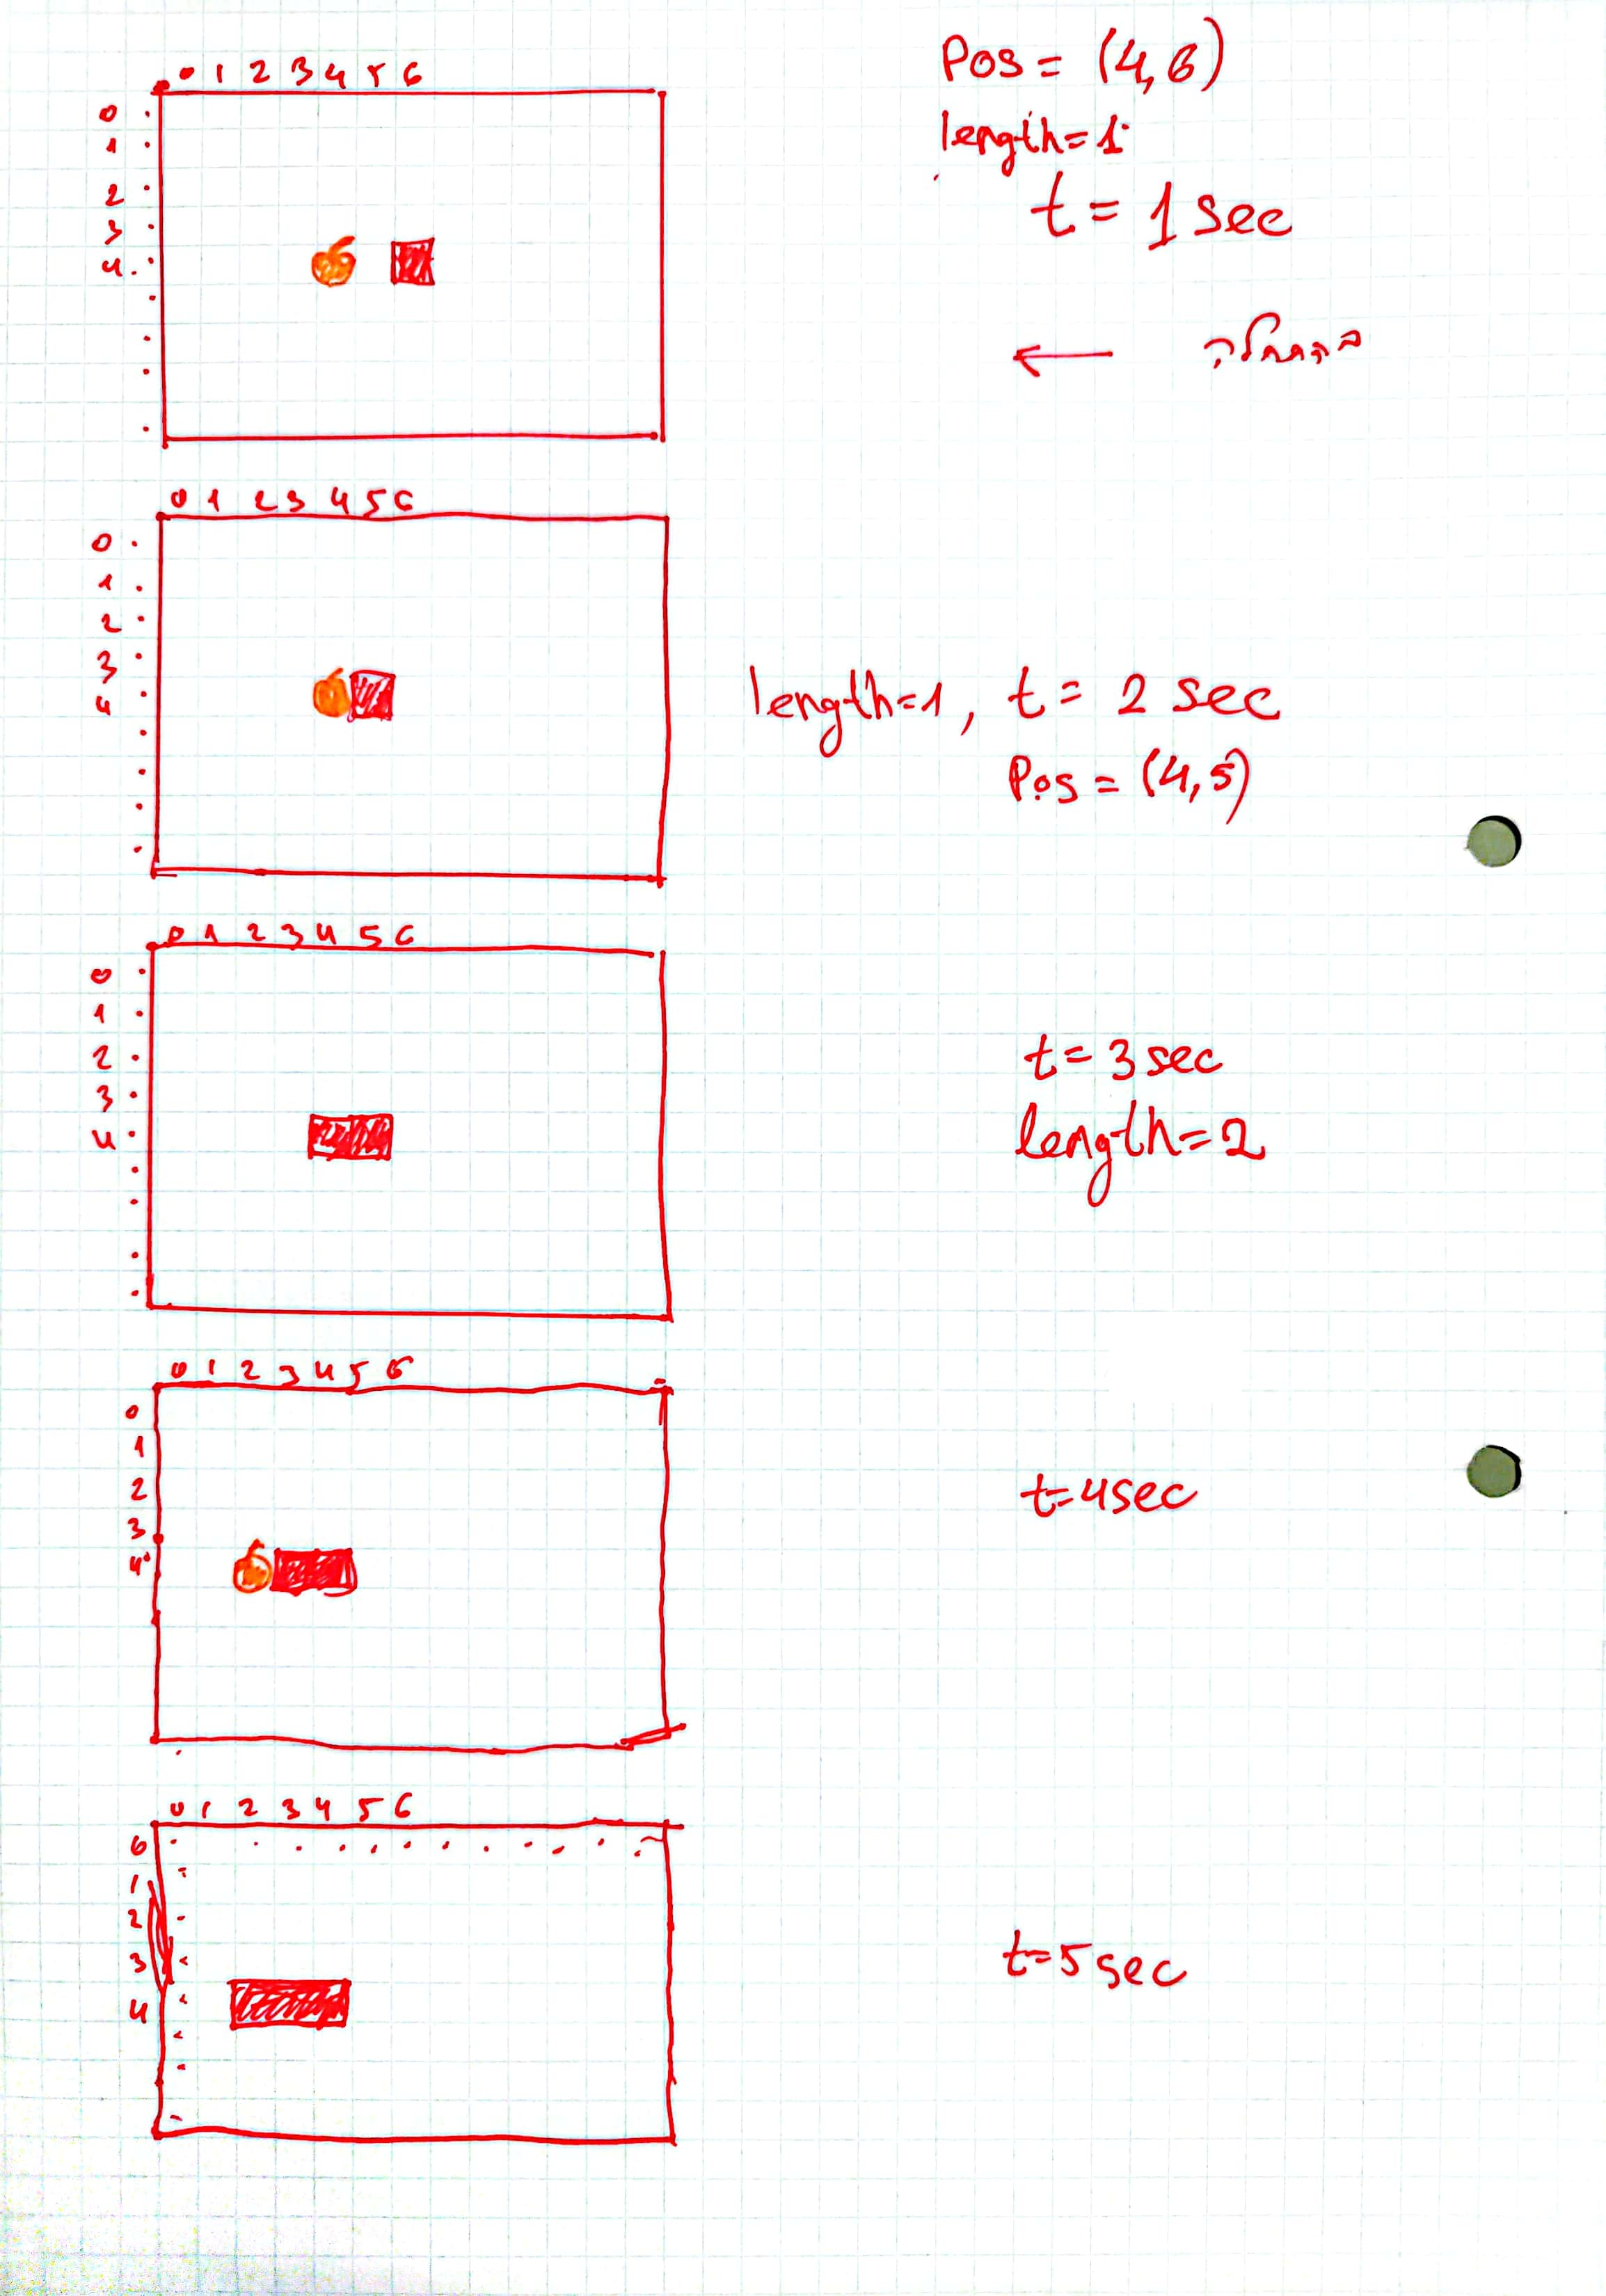 0 1 2 3 4 5 6
0
1
2
3
4
Pos = (4,6)
length=1
t = 1 sec
← התחלה
0 1 2 3 4 5 6
0
1
2
3
4
length=1, t = 2 sec
Pos = (4,5)
0 1 2 3 4 5 6
0
1
2
3
4
t=3 sec
length=2
0 1 2 3 4 5 6
0
1
2
3
4
t=4sec
0 1 2 3 4 5 6
0
1
2
3
4
t=5sec